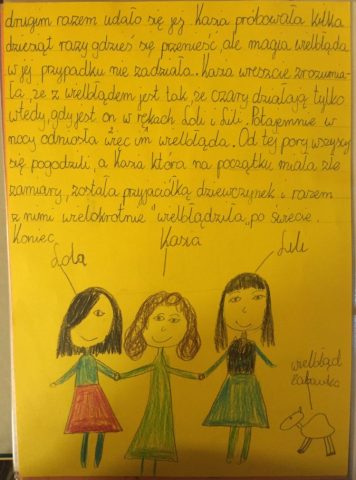 drugim razem udało się jej. Kasia próbowała kilka
dziesiąt razy gdzieś się przenieść, ale magia wielbłąda
w jej przypadku nie zadziała. Kasia wreszcie zrozumia-
ła, że z wielbłądem jest tak, że czary działają tylko
wtedy, gdy jest on w rękach Loli i Lili. Potajemnie w
nocy odniosła więc im wielbłąda. Od tej pory wszyscy
się pogodzili, a Kasia która na początku miała złe
zamiary, została przyjaciółką dziewczynek i razem
z nimi wielokrotnie "wielbłądziła" po świecie.
Koniec
Lola
Kasia
Lili
wielbłąd
zabawka